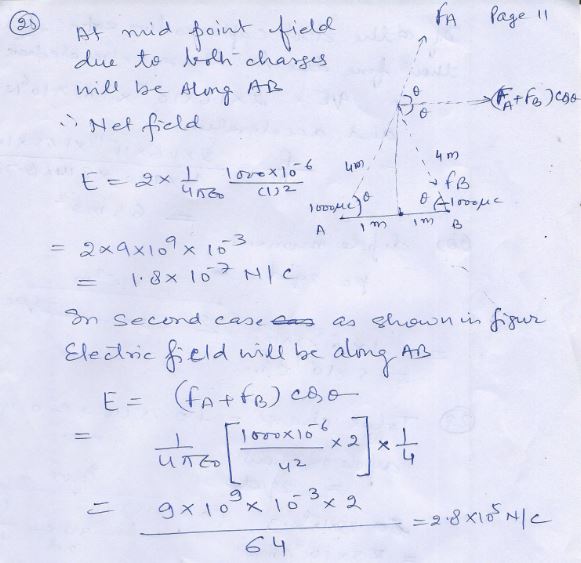 (25) Page 11
At mid point field
due to both charges
will be Along AB
∴ Net field
E = 2 × 1/4πε0 1000×10^-6/(1)^2
= 2×9×10^9 × 10^-3
= 1.8 × 10^-7 N/C
FA
θ
θ
(FA+FB) cosθ
4m 4m
FB
1000μc θ θ -1000μc
A 1m 1m B
In second case as shown in figur
Electric field will be along AB
E = (FA+FB) cosθ
= 1/4πε0 [1000×10^-6/4^2 ×2] × 1/4
= 9×10^9×10^-3×2/64 = 2.8×10^5 N/C